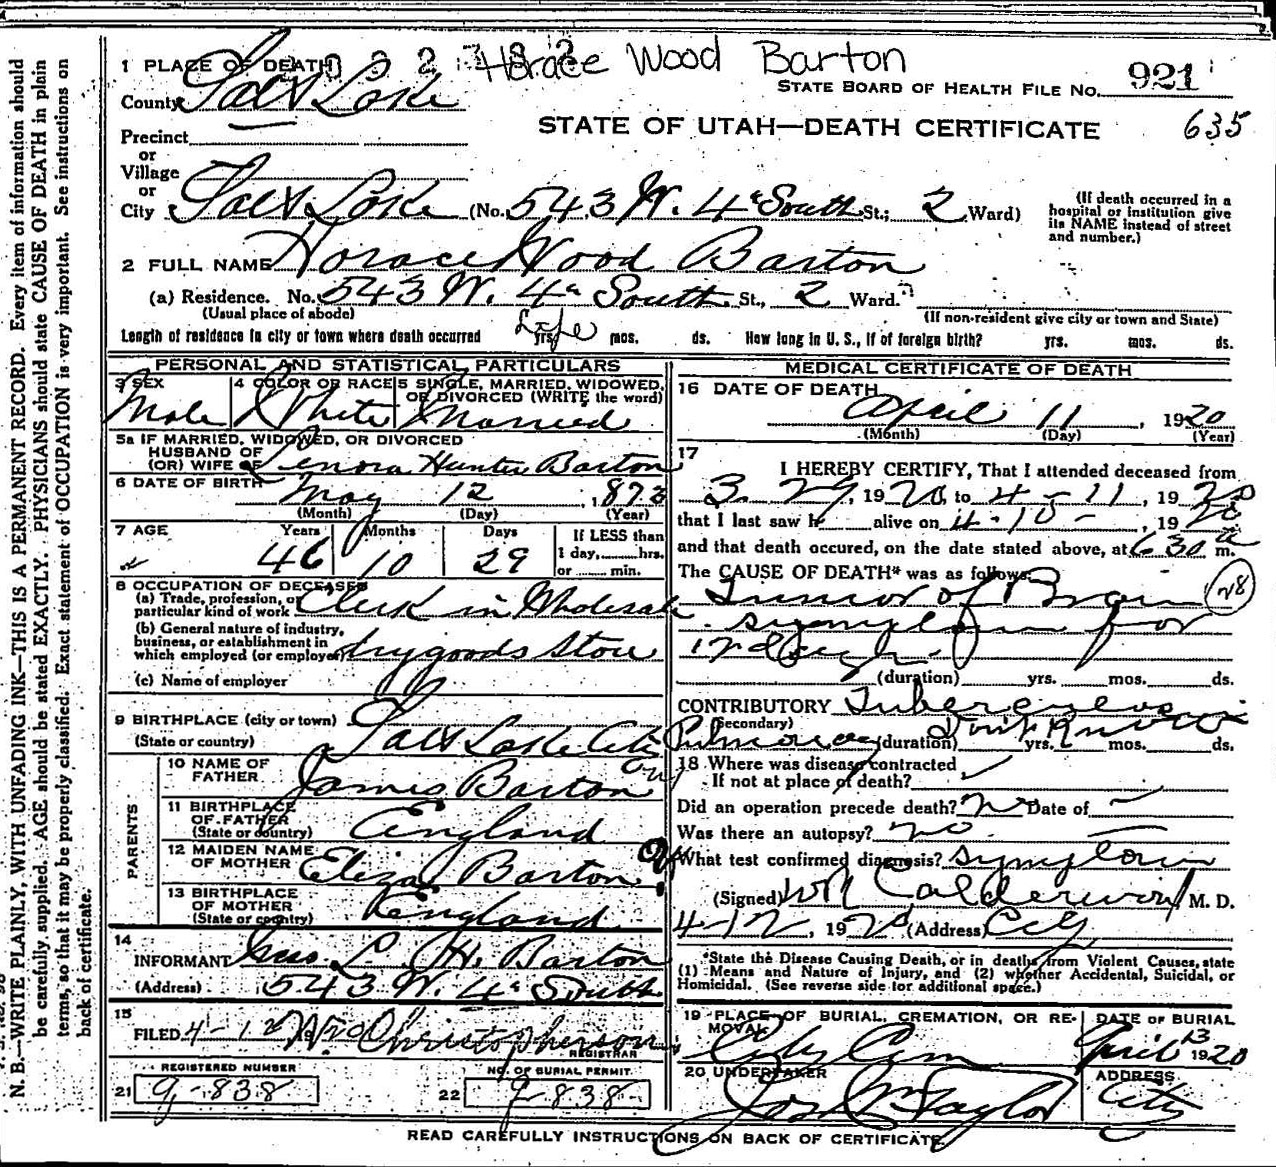 Horace Wood Barton
1 PLACE OF DEATH
County Salt Lake
STATE BOARD OF HEALTH FILE NO. 921
STATE OF UTAH—DEATH CERTIFICATE 635
Precinct
or
Village
or
City Salt Lake (No. 543 W. 4 South St.; 2 Ward)
(If death occurred in a
hospital or institution give
its NAME instead of street
and number.)
2 FULL NAME Horace Wood Barton
(a) Residence. No. 543 W. 4 South St., 2 Ward.
(Usual place of abode) (If non-resident give city or town and State)
Length of residence in city or town where death occurred Life yrs. mos. ds. How long in U. S., if of foreign birth? yrs. mos. ds.
PERSONAL AND STATISTICAL PARTICULARS
3 SEX Male
4 COLOR OR RACE White
5 SINGLE, MARRIED, WIDOWED,
OR DIVORCED (WRITE the word) Married
5a IF MARRIED, WIDOWED, OR DIVORCED
HUSBAND OF
(OR) WIFE OF Lenora Hunter Barton
6 DATE OF BIRTH May 12, 1873
(Month) (Day) (Year)
7 AGE Years Months Days If LESS than
46 10 29 1 day, hrs.
or min.
8 OCCUPATION OF DECEASED
(a) Trade, profession, or
particular kind of work Clerk in Wholesale
(b) General nature of industry,
business, or establishment in
which employed (or employer) drygoods Store
(c) Name of employer
9 BIRTHPLACE (city or town)
(State or country) Salt Lake City
PARENTS
10 NAME OF
FATHER James Barton
11 BIRTHPLACE
OF FATHER
(State or country) England
12 MAIDEN NAME
OF MOTHER Eliza Barton
13 BIRTHPLACE
OF MOTHER
(State or country) England
14
INFORMANT L. H. Barton
(Address) 543 W. 4 South
15
FILED 4-12 Christopherson
REGISTRAR
REGISTERED NUMBER NO. OF BURIAL PERMIT
21 9-838 22 9-838
MEDICAL CERTIFICATE OF DEATH
16 DATE OF DEATH
April 11, 1920
(Month) (Day) (Year)
17
I HEREBY CERTIFY, That I attended deceased from
3. 29, 1920, to 4-11, 1920
that I last saw h alive on 4-10-, 1920
and that death occured, on the date stated above, at 6 30 a m.
The CAUSE OF DEATH* was as follows:
Tumor of Brain 78
for
(duration) yrs. mos. ds.
CONTRIBUTORY Tuberculosis
(Secondary)
Pulmonary (duration) Don't Know yrs. mos. ds.
18 Where was disease contracted
If not at place of death?
Did an operation precede death? no Date of —
Was there an autopsy? no.
What test confirmed diagnosis?
(Signed) Calderwood M. D.
4-12, 1920 (Address) City
*State the Disease Causing Death, or in deaths from Violent Causes, state
(1) Means and Nature of Injury, and (2) whether Accidental, Suicidal, or
Homicidal. (See reverse side for additional space.)
19 PLACE OF BURIAL, CREMATION, OR RE-
MOVAL City Cem
DATE OF BURIAL
April 13 1920
20 UNDERTAKER
Jos Taylor
ADDRESS
City
READ CAREFULLY INSTRUCTIONS ON BACK OF CERTIFICATE.
N. B.—WRITE PLAINLY, WITH UNFADING INK—THIS IS A PERMANENT RECORD. Every item of information should
be carefully supplied. AGE should be stated EXACTLY. PHYSICIANS should state CAUSE OF DEATH in plain
terms, so that it may be properly classified. Exact statement of OCCUPATION is very important. See instructions on
back of certificate.